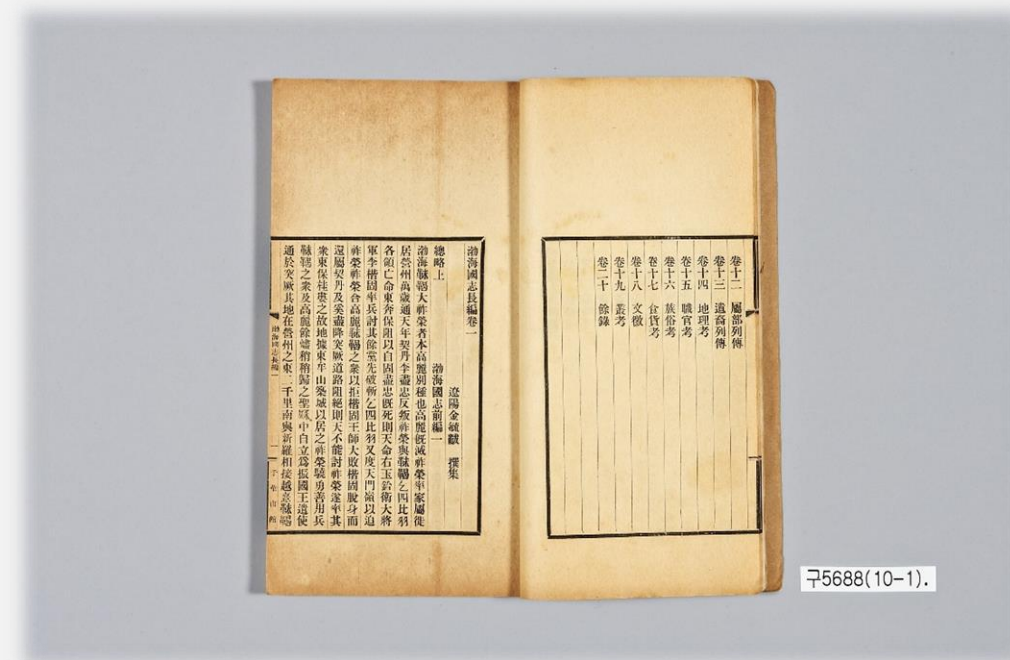 卷十二 屬部列傳
卷十三 遺裔列傳
卷十四 地理考
卷十五 職官考
卷十六 族俗考
卷十七 食貨考
卷十八 文徵
卷十九 叢考
卷二十 餘錄
渤海國志長編卷一
遼陽金毓黻 撰集
總略上 渤海國志前編一
渤海靺鞨大祚榮者本高麗別種也高麗旣滅祚榮率家屬徙
居營州萬歲通天年契丹李盡忠反叛祚榮與靺鞨乞四比羽
各領亡命東奔保阻以自固盡忠旣死則天命右玉鈐衛大將
軍李楷固率兵討其餘黨先破斬乞四比羽又度天門嶺以迫
祚榮祚榮合高麗靺鞨之衆以拒楷固王師大敗楷固脫身而
還屬契丹及奚盡降突厥道路阻絕則天不能討祚榮遂率其
衆東保桂婁之故地據東牟山築城以居之祚榮驍勇善用兵
靺鞨之衆及高麗餘燼稍稍歸之聖曆中自立爲振國王遣使
通於突厥其地在營州之東二千里南與新羅相接越熹靺鞨
渤海國志長編一
千華山館
구5688(10-1).